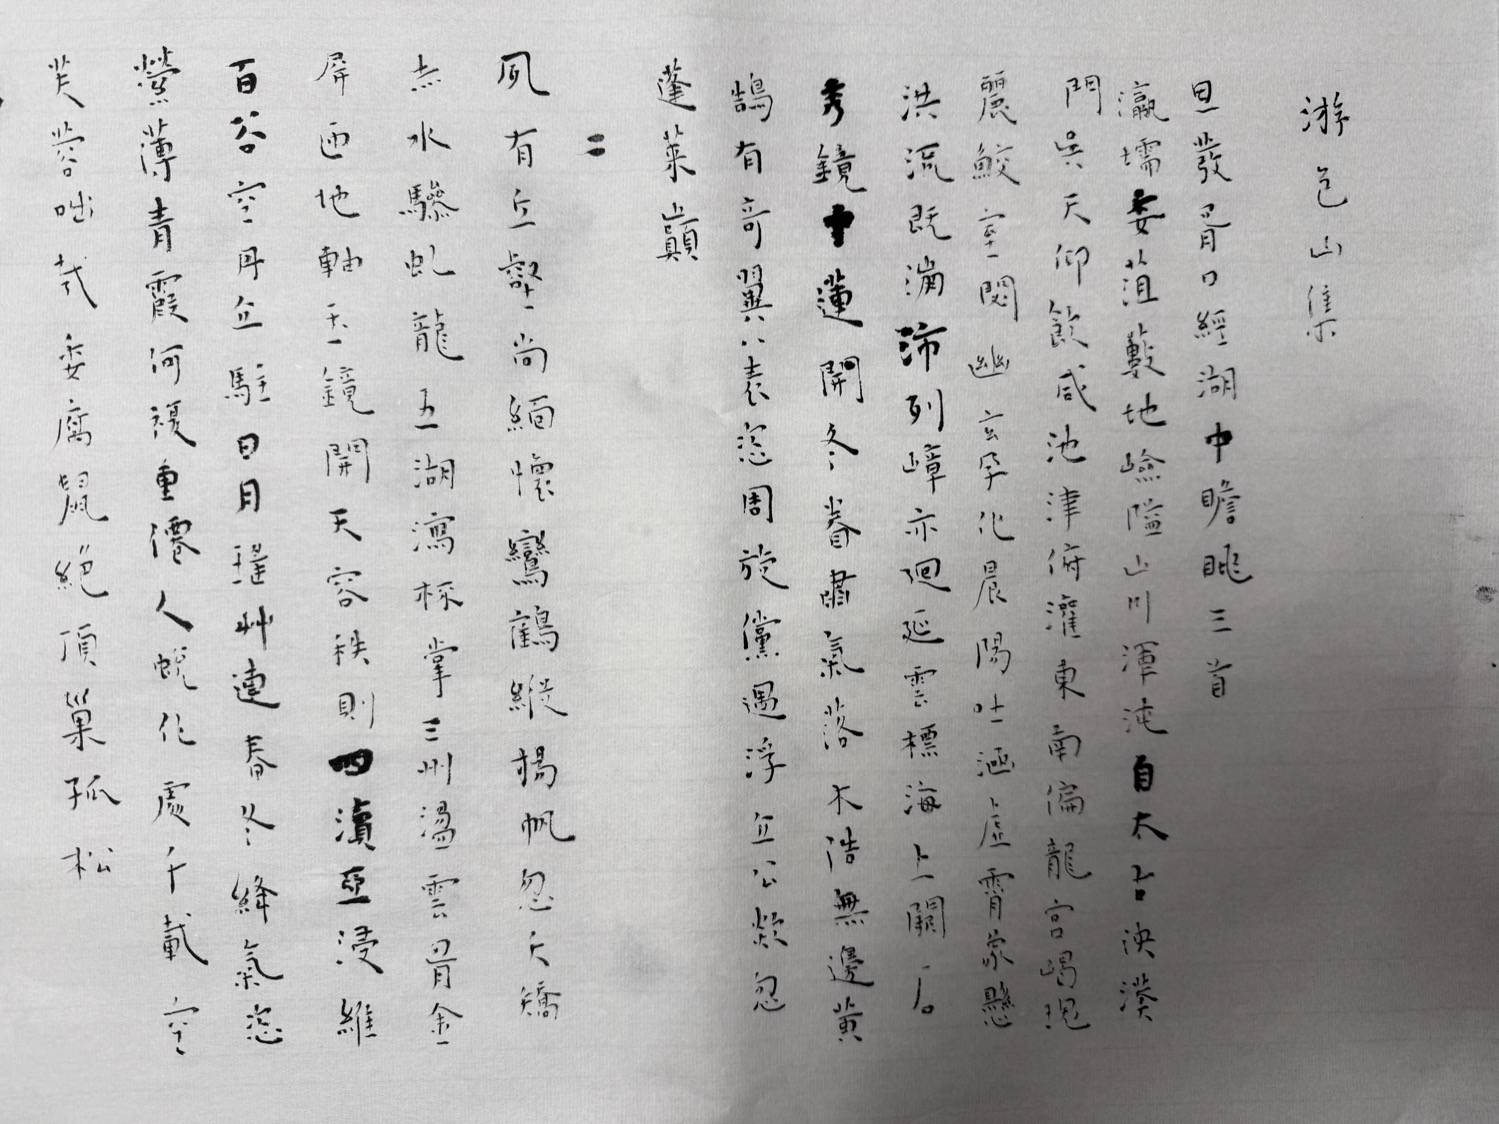 游包山集
旦發胥口經湖中瞻眺三首
瀛壖委菹藪地嶮隘山川渾沌自太古泱漭
門吳天仰飲咸池津俯灌東南偏龍宮嵑
麗鮫室閟幽玄孕化晨陽吐涵虛霄象懸
洪流既瀰沛列嶂亦迴延雲標海上闕石
秀鏡中蓮開冬眷肅氣落木浩無邊黃
鵠有奇翼八表恣周旋儻遇浮丘公欻忽
蓬萊巔
二
夙有丘壑尚緬懷鸞鶴縱揚帆忽夭矯
赤水驂虬龍五湖瀉杯掌三州盪雲胥金
屏西地軸玉鏡開天容秩則四瀆亞浸維
百谷空丹丘駐日月瑤艸連春冬絳氣恣
縈薄青霞何複重僊人蛻化處千載空
芙蓉咄哉委腐鼠絕頂巢孤松